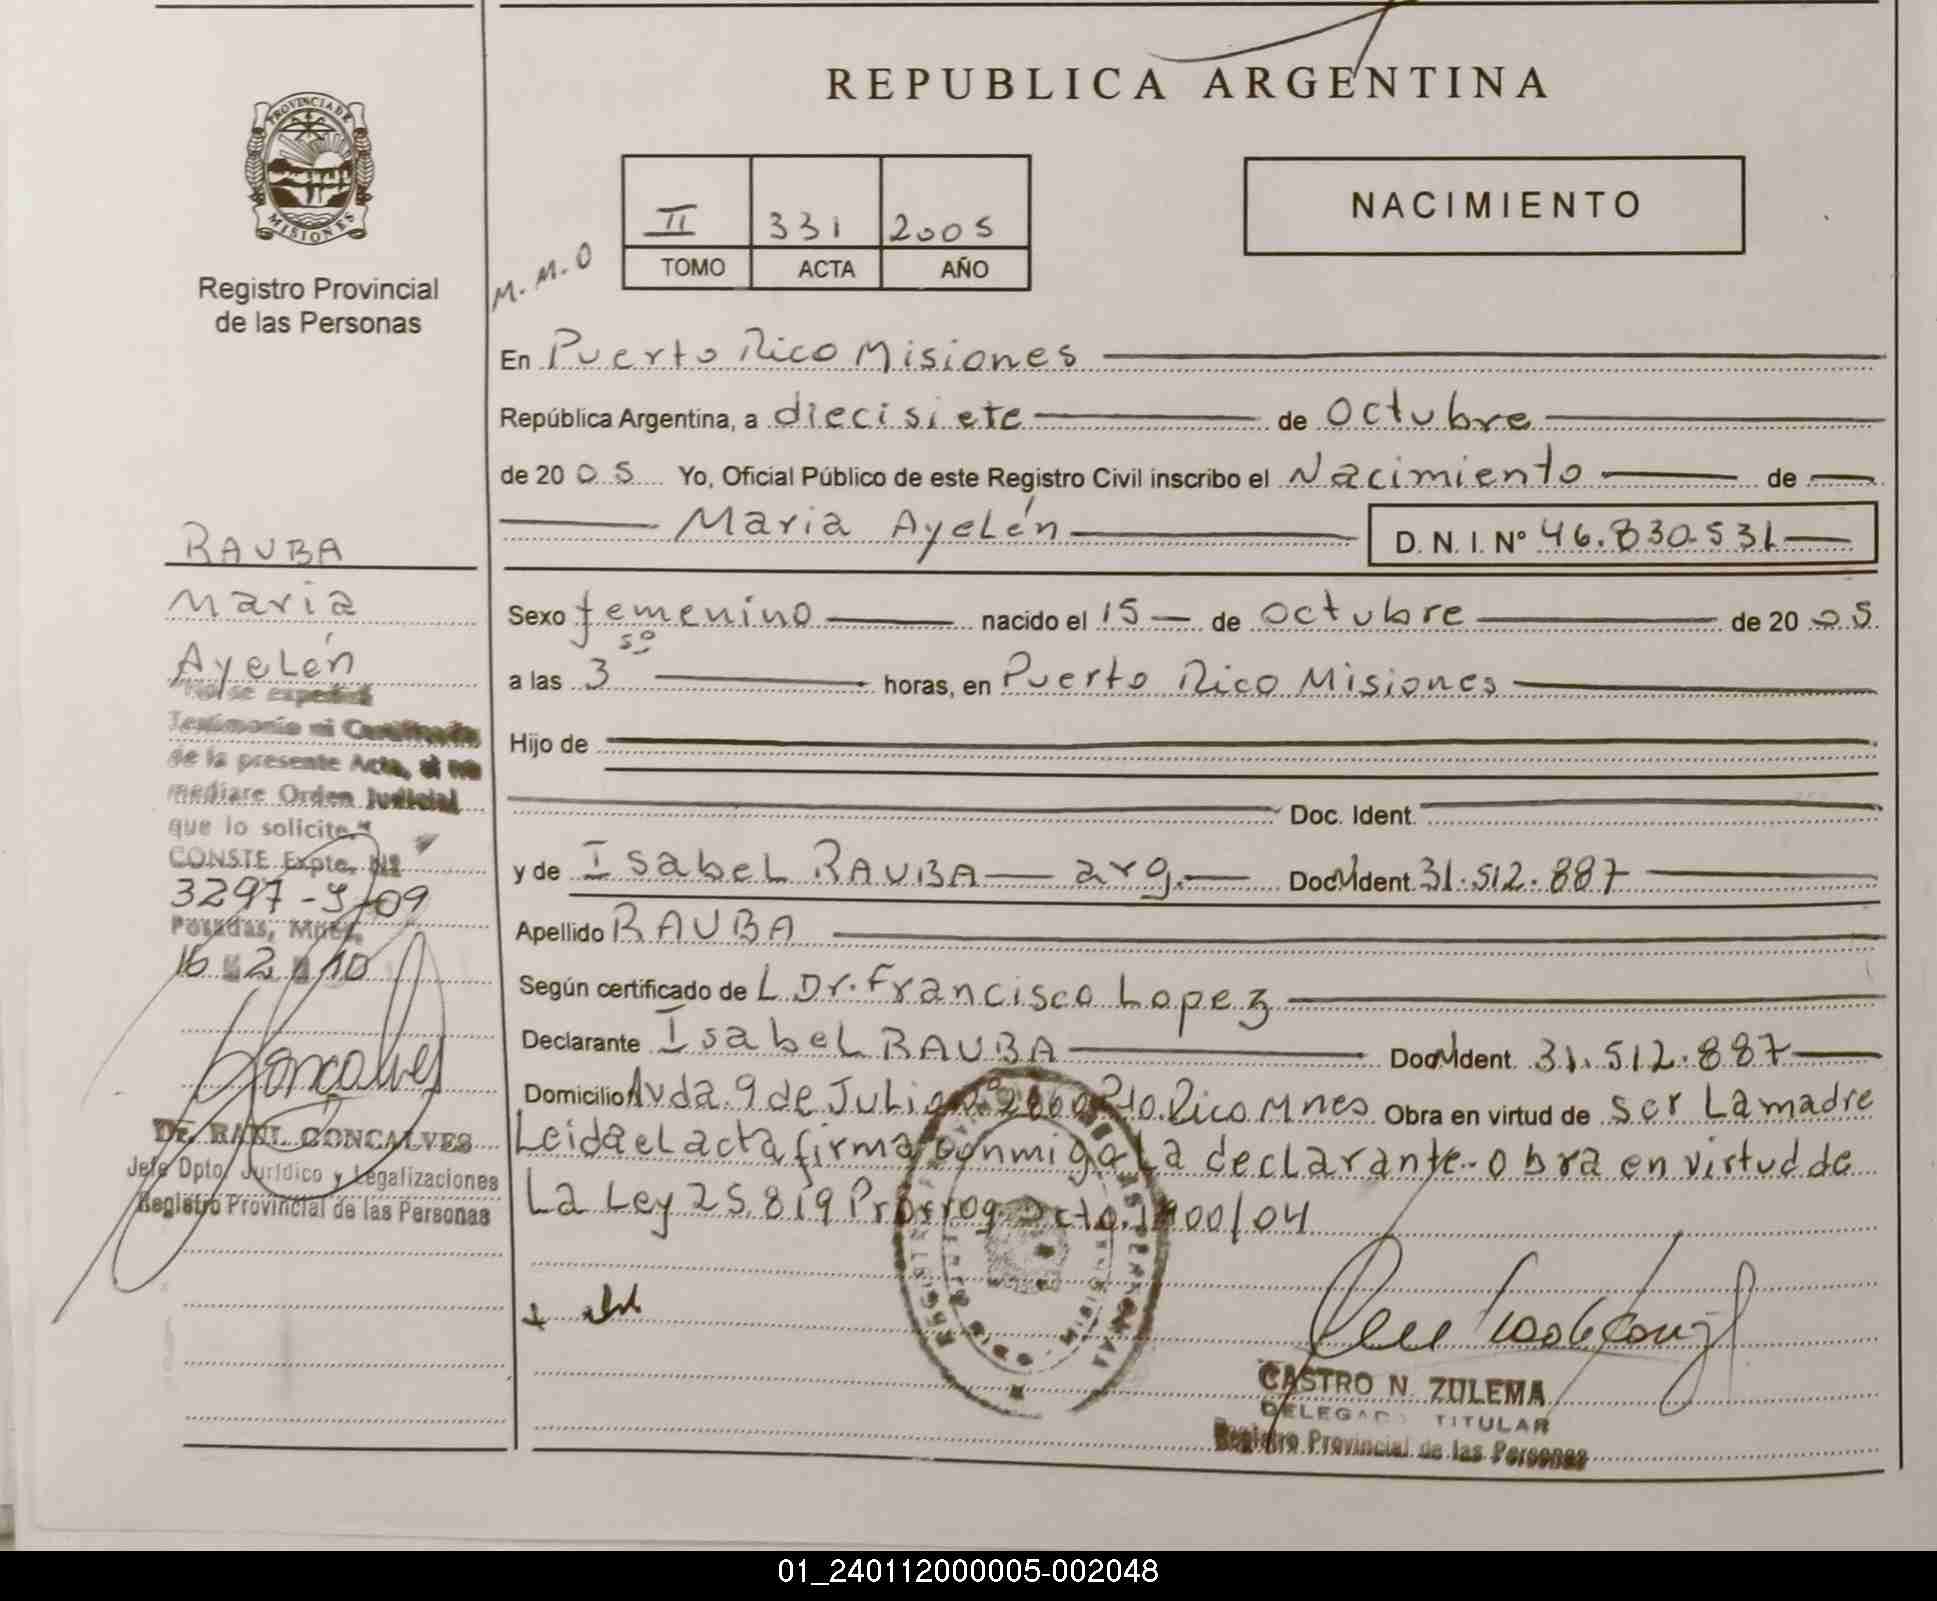 REPUBLICA ARGENTINA
PROVINCIA DE
MISIONES
Registro Provincial
de las Personas
M.M.O
II 331 2005
TOMO ACTA AÑO
NACIMIENTO
En Puerto Rico Misiones
República Argentina, a diecisiete de Octubre
de 2005 Yo, Oficial Público de este Registro Civil inscribo el Nacimiento de
Maria Ayelén D. N. I. Nº 46.830.531
Sexo femenino nacido el 15 de Octubre de 2005
a las 3 50 horas, en Puerto Rico Misiones
Hijo de
Doc. Ident.
y de Isabel RAUBA arg. Doc. Ident. 31.512.887
Apellido RAUBA
Según certificado de L Dr. Francisco Lopez
Declarante Isabel RAUBA Doc. Ident. 31.512.887
Domicilio Avda. 9 de Julio Pto. Rico Mnes Obra en virtud de ser La madre
Leida el acta firma conmigo La declarante. Obra en virtud de
La Ley 25.819 Prorrog. Dcto. 1400/04
CASTRO N. ZULEMA
DELEGADO TITULAR
Registro Provincial de las Personas
RAUBA
Maria
Ayelén
"No se expedirá
Testimonio ni Certificado
de la presente Acta, si no
mediare Orden Judicial
que lo solicite."
CONSTE Expte. Nº
3297-9-09
Posadas, Mnes.
16 2 10
Dr. RAUL GONCALVES
Jefe Dpto. Jurídico y Legalizaciones
Registro Provincial de las Personas
01_240112000005-002048